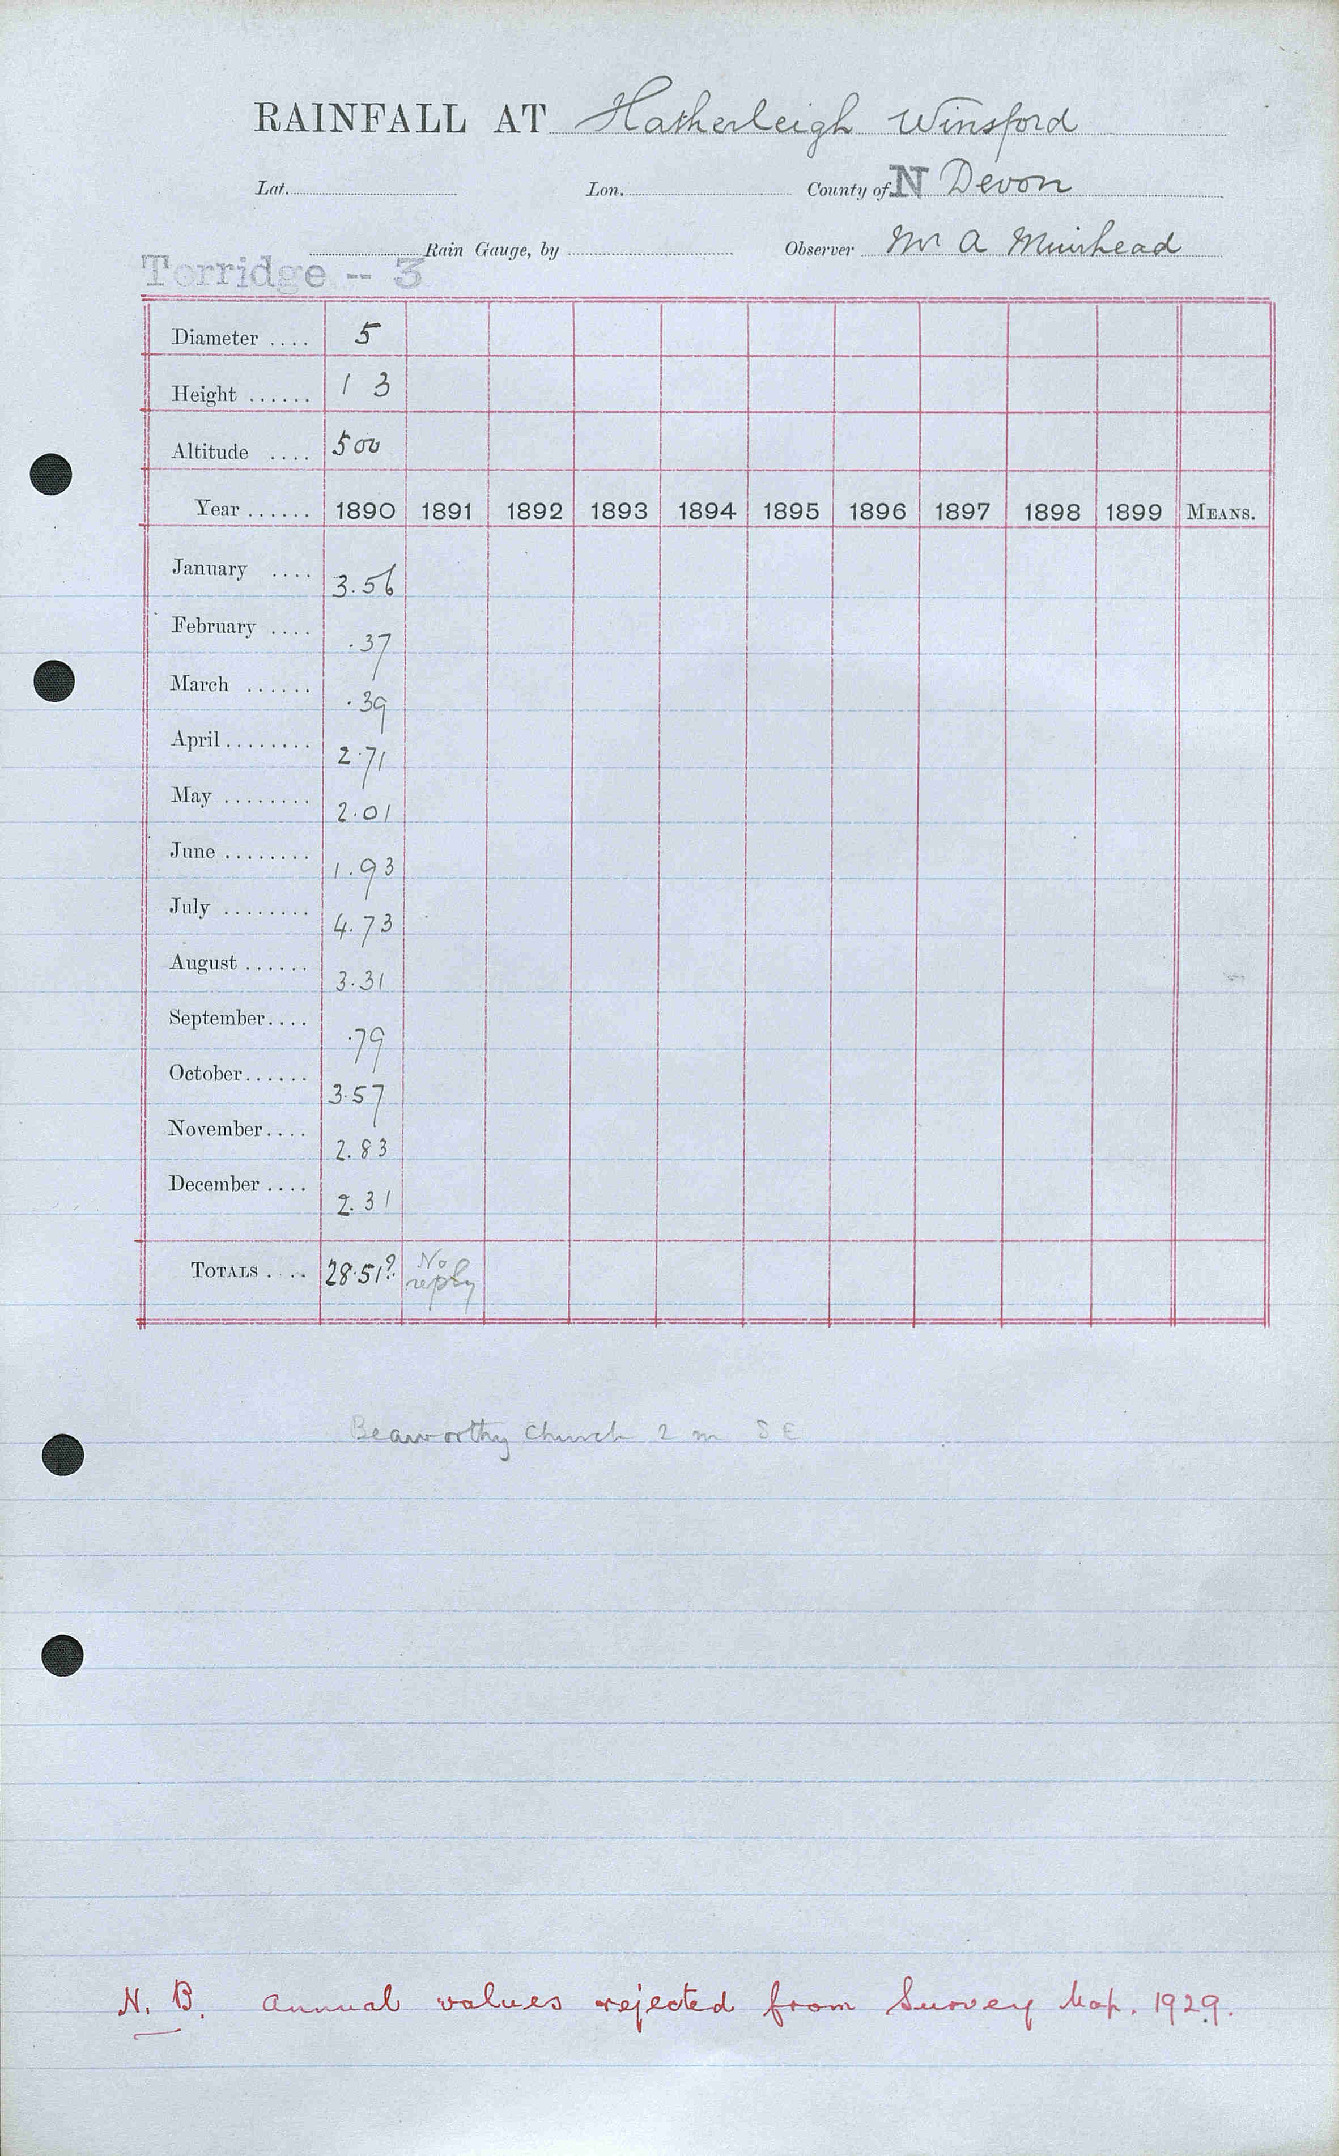 RAINFALL AT Hatherleigh Winsford
Lat. Lon. County of N Devon
Rain Gauge, by Observer Mr A Muirhead
Torridge -- 3
Diameter .... 5
Height ...... 1 3
Altitude .... 500
Year ...... 1890 1891 1892 1893 1894 1895 1896 1897 1898 1899 MEANS.
January .... 3.56
February .... .37
March ...... .39
April ........ 2.71
May ........ 2.01
June ........ 1.93
July ........ 4.73
August ...... 3.31
September .... .79
October ...... 3.57
November .... 2.83
December .... 2.31
TOTALS .... 28.51? No reply
Beaworthy Church 2 m S E
N. B. Annual values rejected from Survey Map. 1929.